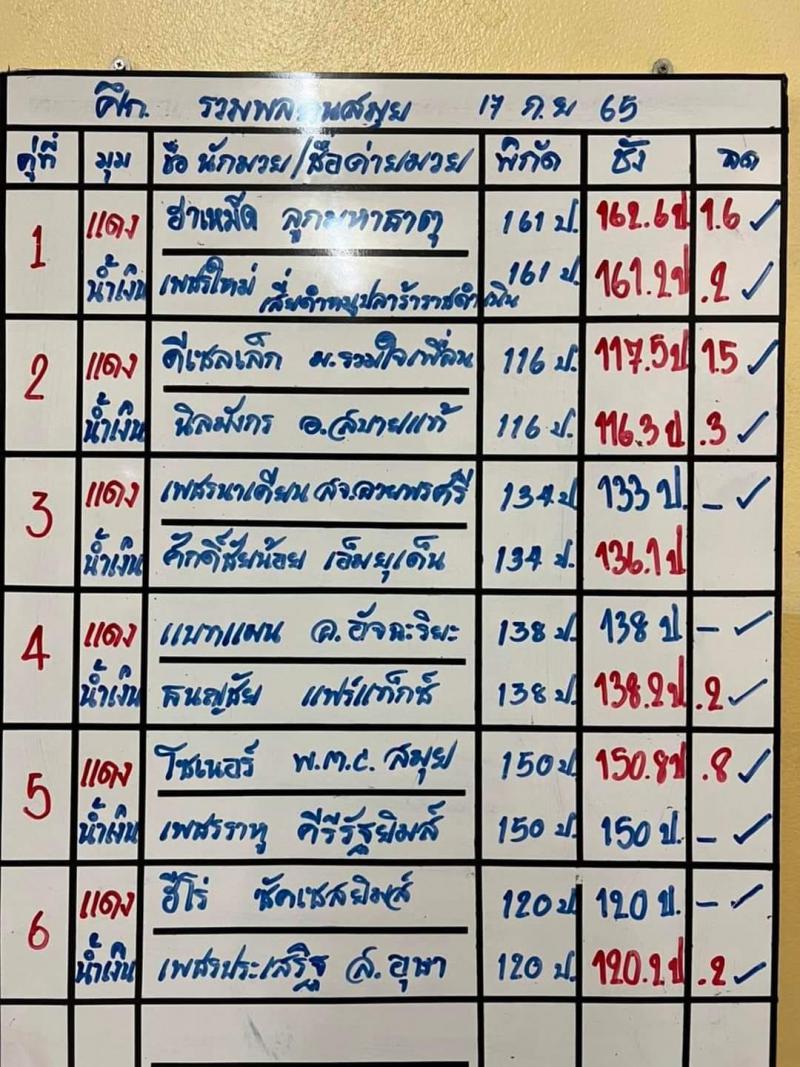 ศึก รวมพลคนสมุย 17 ก.ย 65
คู่ที่ มุม ชื่อนักมวย/ชื่อค่ายมวย พิกัด ชั่ง ลด
1 แดง ฮาเหม็ด ลูกมหาธาตุ 161 ป. 162.6 ป 1.6 ✓
น้ำเงิน เพชรใหม่ เสี่ยดำหมูปลาร้าราชดำเนิน 161 ป. 161.2 ป .2 ✓
2 แดง ดีเซลเล็ก ม.รวมใจเพื่อน 116 ป. 117.5 ป 1.5 ✓
น้ำเงิน นิลมังกร อ.สบายแท้ 116 ป. 116.3 ป .3 ✓
3 แดง เพชรนาเคียน สจ.ลายพรศรี 134 ป 133 ป. - ✓
น้ำเงิน ศักดิ์ชัยน้อย เอ็มยุเด็น 134 ป. 136.1 ป
4 แดง แบทแมน อ.อัจฉะริยะ 138 ป. 138 ป - ✓
น้ำเงิน ธนญชัย แฟร์แท็กซ์ 138 ป. 138.2 ป .2 ✓
5 แดง โซเนอร์ พ.ท.c. สมุย 150 ป. 150.8 ป .8 ✓
น้ำเงิน เพชรราหู คีรีรัฐยิมส์ 150 ป. 150 ป. - ✓
6 แดง ฮีโร่ ซัคเซสยิมส์ 120 ป 120 ป. - ✓
น้ำเงิน เพชรประเสริฐ ส.อุษา 120 ป. 120.2 ป .2 ✓